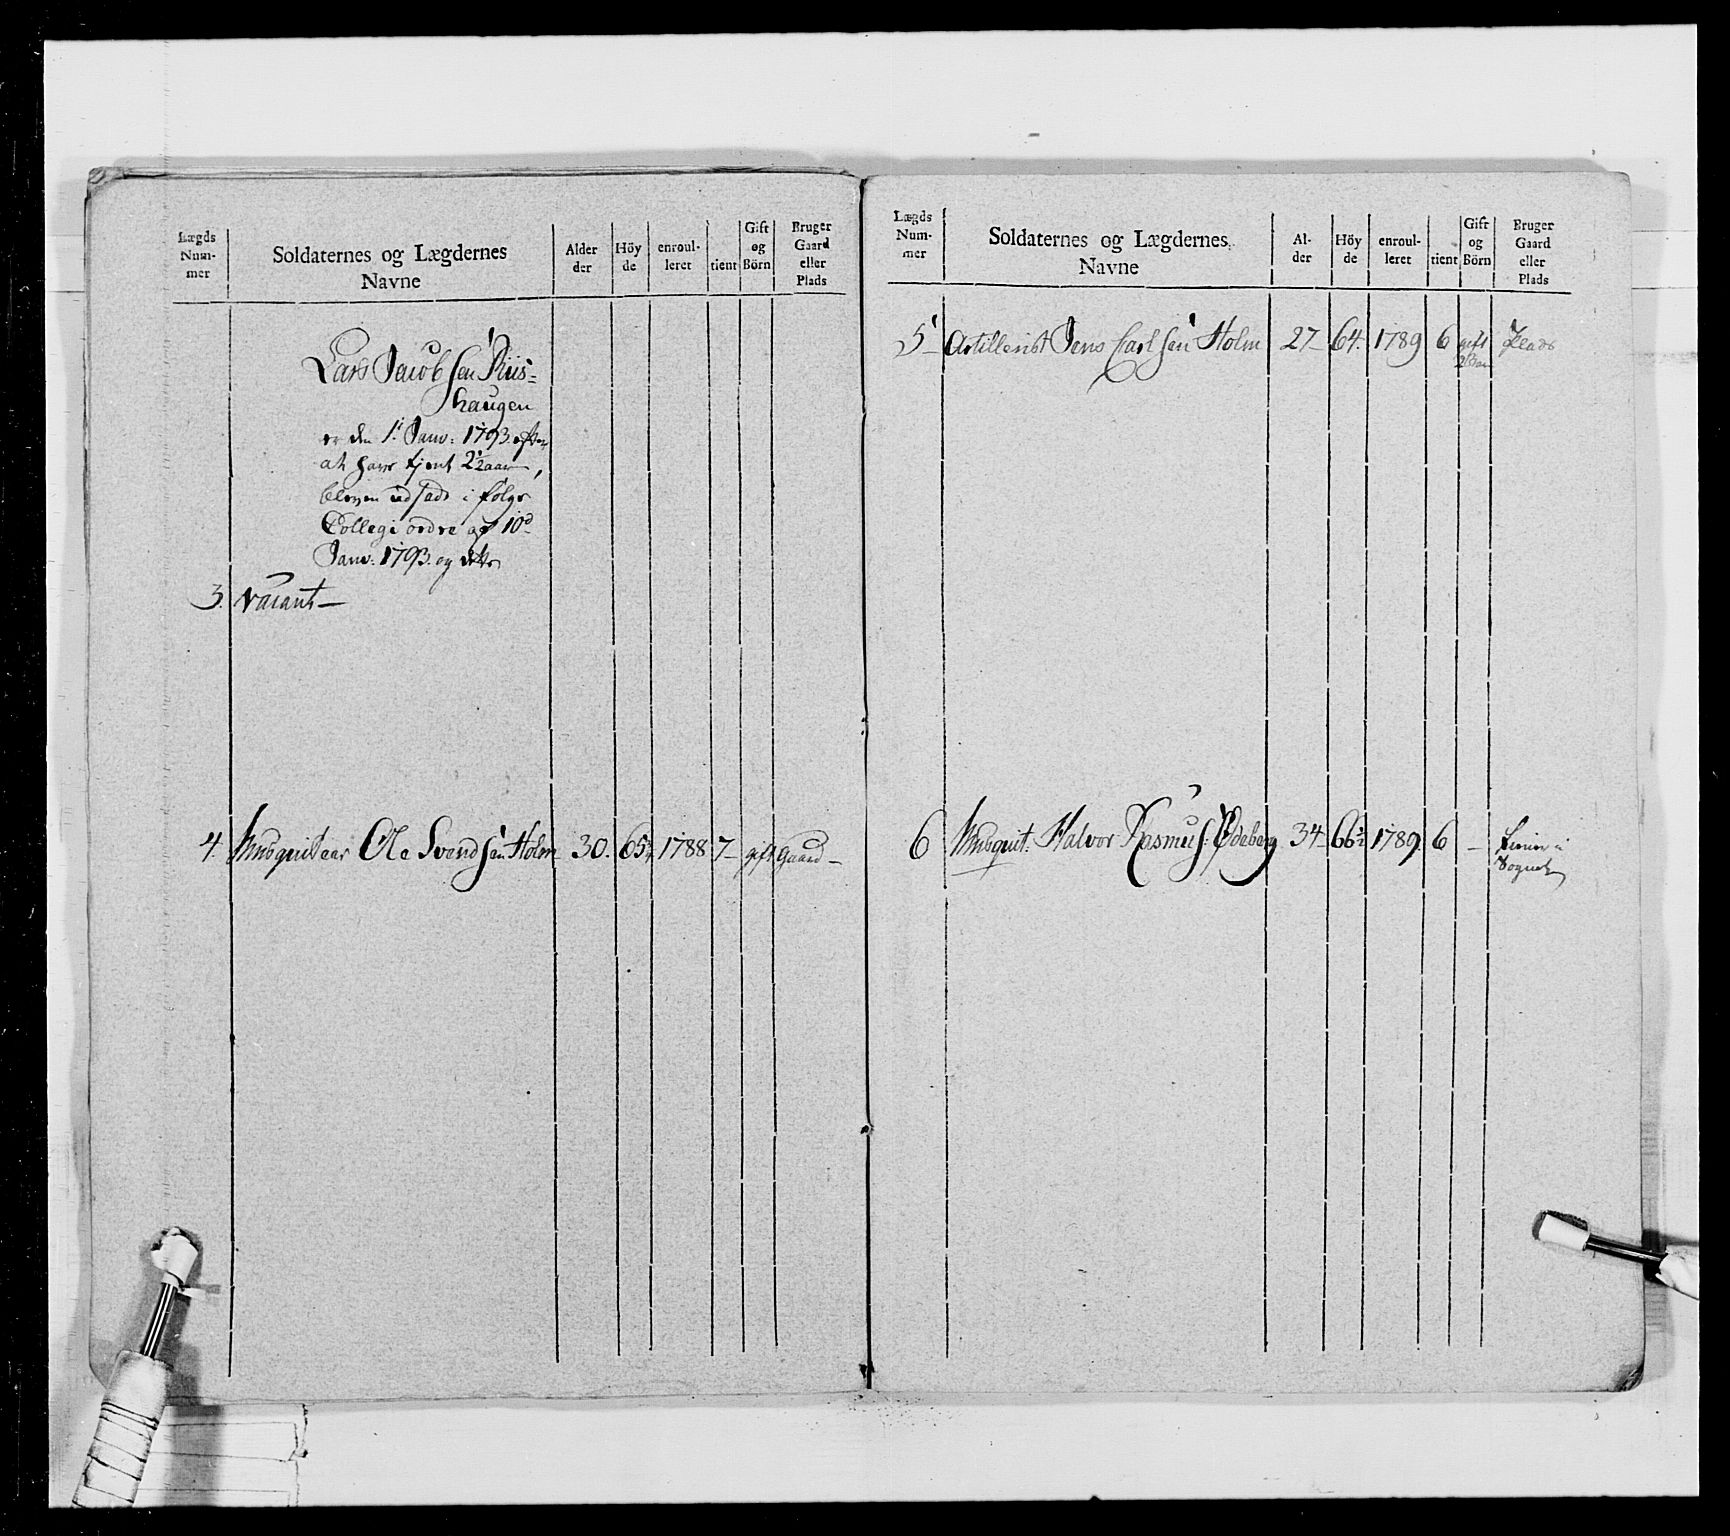 Lægds Num- mer
Soldaternes og Lægdernes Navne
Alder der
Höy de
enroul- leret
tient
Gift og Börn
Bruger Gaard eller Plads
Lars Jacobsen Riis=
haugen
er den 1te Janv: 1793. efter
at have tjent 2½ aar,
bleven udsadt i følge
Collegi ordre af 10d
Janv: 1793. og dette
3. vacant —
4. Musquitaar Ole Svendsen Holm 30. 65½ 1788 7 — gift Gaard —
Lægds Num- mer
Soldaternes og Lægdernes Navne
Al- der
Höy de
enroul- leret
tient
Gift og Börn
Bruger Gaard eller Plads
5 — Artillerist Jens Carlsen Holm 27 — 64. 1789 6 gift Plads
6 Musquit: Halvor Rasmus: Ødeberg 34 — 66½ 1789. 6 — tiener i
Sognet